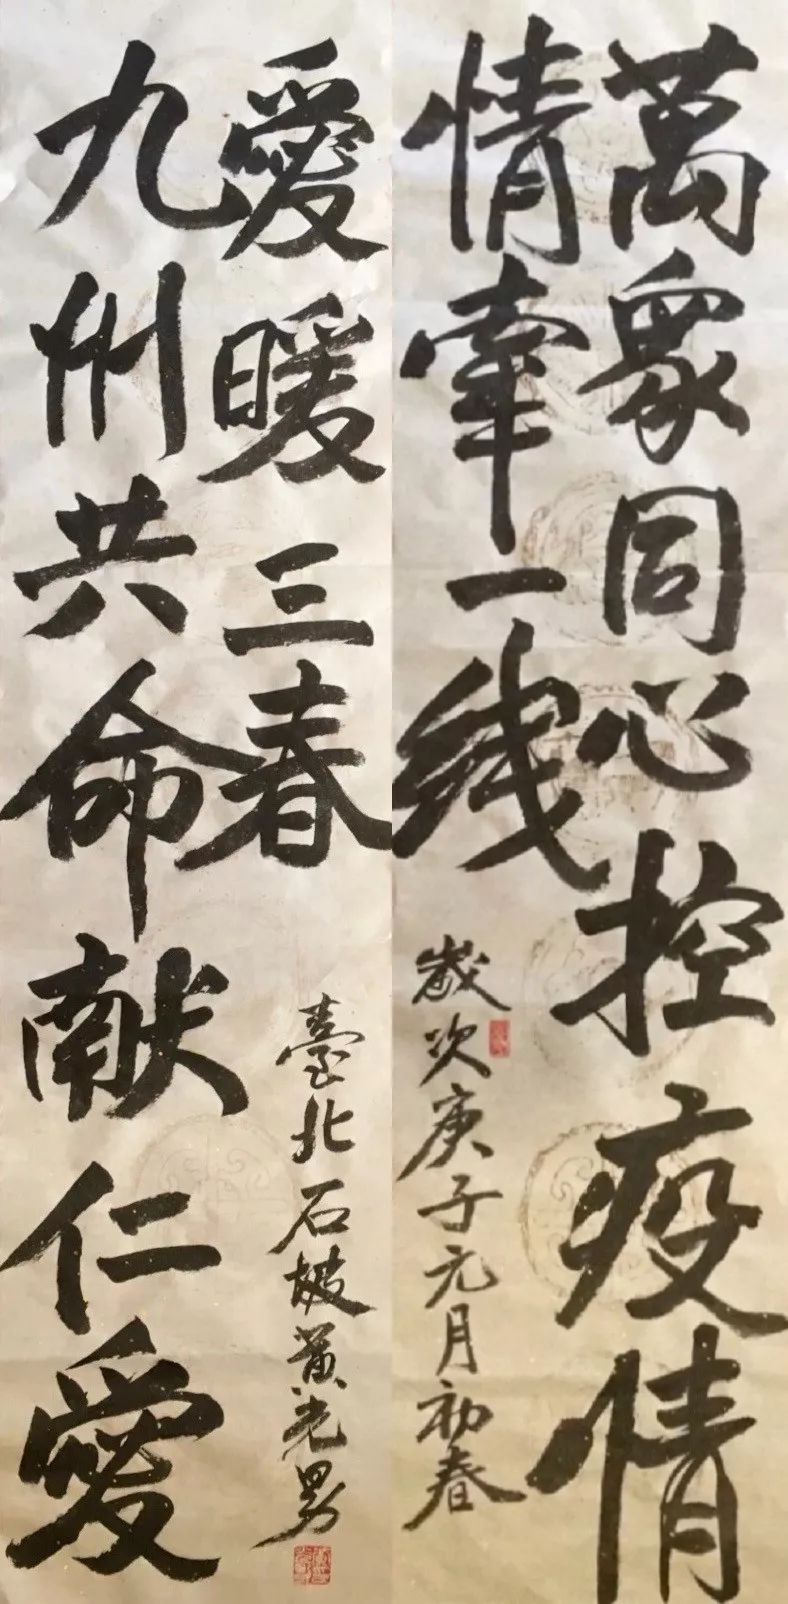 萬眾同心控疫情
情牽一綫
歲次庚子元月初春
九州共命献仁愛
愛暖三春
臺北石坡黄光男